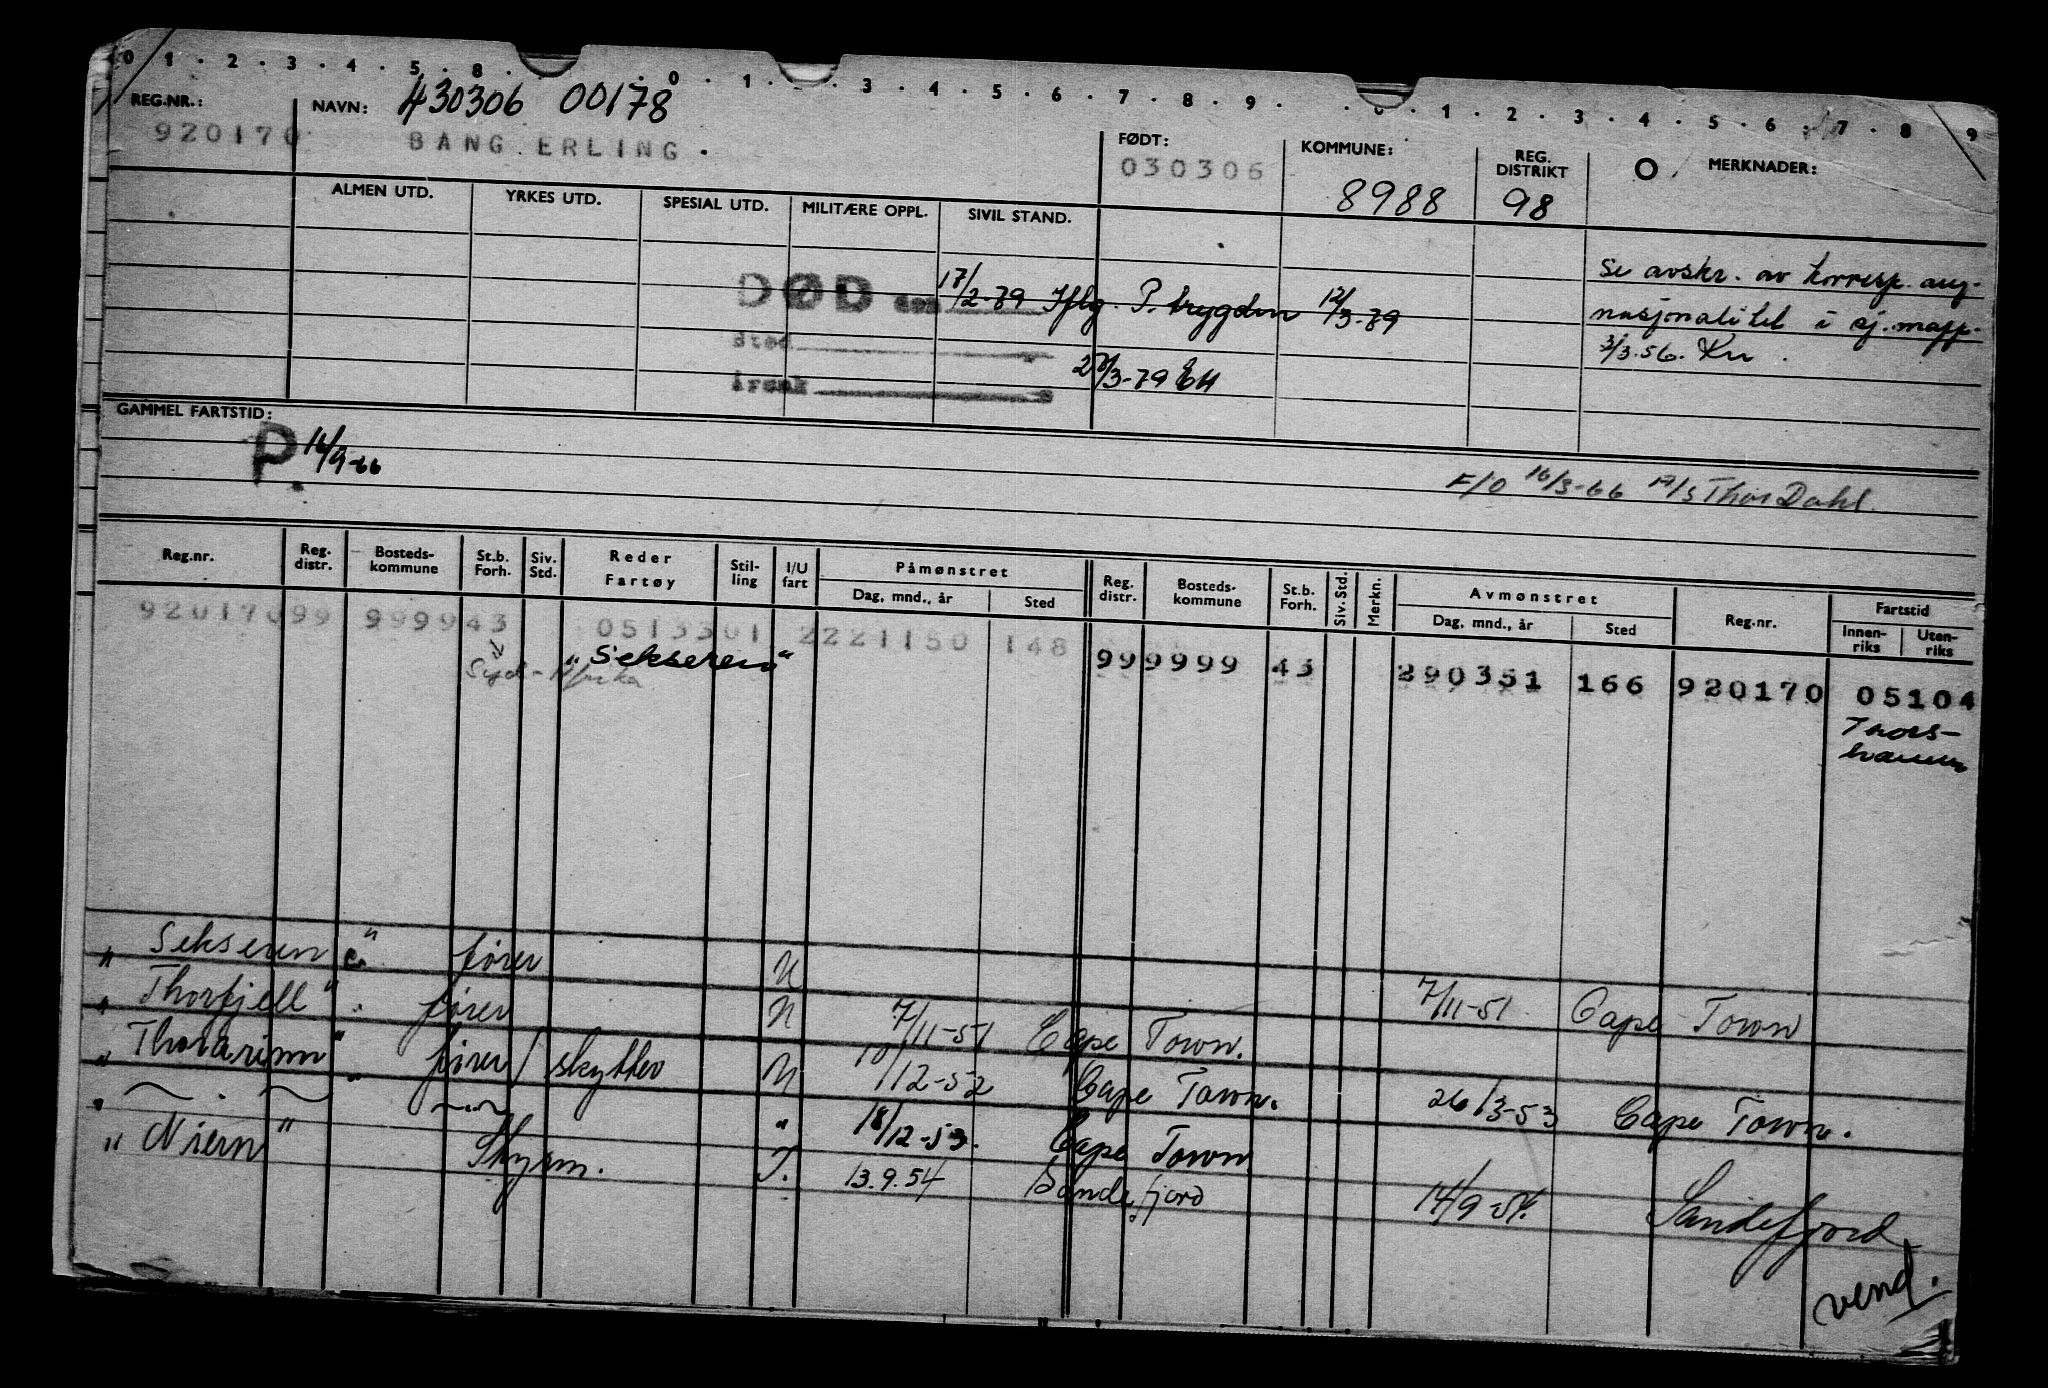 0 1 . 2 . 3 . 4 . 5 . 8 . . 0 . 1 . . 3 . 4 . 5 . 6 . 7 . 8 . 9 . . 0 . 1 . 2 . 3 . 4 . 5 . 6 . 7 . 8 9
REG.NR.: NAVN: 430306 00178
920170 BANG ERLING . FØDT: 030306 KOMMUNE: 8988 REG. DISTRIKT 98 O MERKNADER:
ALMEN UTD. YRKES UTD. SPESIAL UTD. MILITÆRE OPPL. SIVIL STAND.
Se avskr. av korresp. ang.
DØD den 17/2-79 Iflg. P. trygden 12/3-79
nasjonalitet i sj.mapp.
sted
3/3.56. Kn.
årsak 28/3-79 EH
GAMMEL FARTSTID:
P. 16/9-66
F/O 16/3-66 A/S Thor Dahl.
Reg.nr. Reg. distr. Bosteds- kommune St.b. Forh. Siv. Std. Reder Fartøy Stil- ling I/U fart Påmønstret Dag, mnd., år Sted Reg. distr. Bosteds- kommune St.b. Forh. Siv. Std. Merkn. Avmønstret Dag, mnd., år Sted Reg.nr. Fartstid Innen- riks Uten- riks
92017099 999943 0513301 2221150 148 999999 43 290351 166 920170 05104
Syd-Afrika "Sekseren"
Thors-
havn
"Sekseren" fører U 7/11-51 Cape Town
"Thorfjell" fører U 7/11-51 Cape Town.
"Thorarinn" fører/skytter U 10/12-52 Cape Town. 26/3-53 Cape Town.
" 18/12-53. Cape Town
"Niern" Skyem. I. 13.9.54 Sandefjord 14/9-54. Sandefjord
vend.